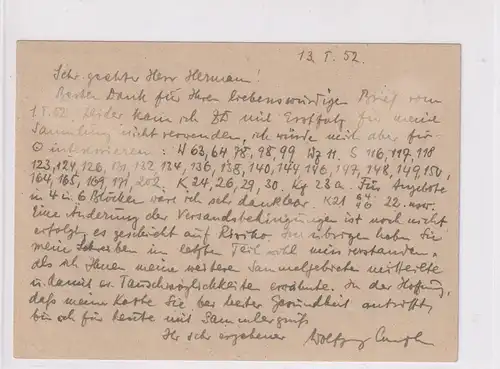 13. I. 52.
Sehr geehrter Herr Hermann!
Besten Dank für Ihren liebenswürdigen Brief vom
1.I.52. Leider kann ich ZD mit Erstfalz für meine
Sammlung nicht verwenden, ich würde mich aber für
⊙ interessieren: W 63, 64, 78, 98, 99 Wz 11. S 116, 117, 118
123, 124, 126, 131, 132, 134, 136, 138, 140, 144, 146, 147, 148, 149, 150,
164, 165, 169, 171, 202. K 24, 26, 29, 30. Kz 23a. Für Angebote
in 4 u 6 Blöcken wäre ich sehr dankbar. K21 22.
Eine Änderung der Versandbedingungen ist noch nicht
erfolgt, es geschieht auf Risiko. Im übrigen haben Sie
mein Schreiben im letzten Teil wohl missverstanden,
als ich Ihnen meine weitere Sammelgebiete mitteilte
u. damit Tauschmöglichkeiten erwähnte. In der Hoffnung,
daß meine Karte Sie bei bester Gesundheit antrifft,
bin ich für heute mit Sammlergruß
Ihr sehr ergebener Wolfgang